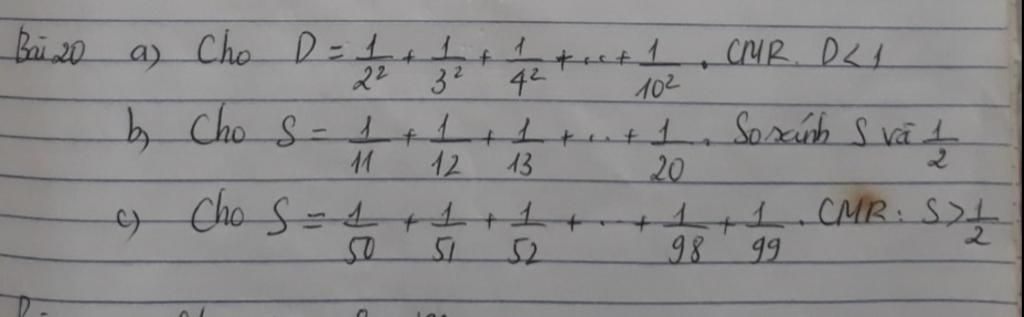 Bài 20 a) Cho D = 1/2² + 1/3² + 1/4² + ... + 1/10² . CMR. D < 1
b) Cho S = 1/11 + 1/12 + 1/13 + ... + 1/20 . So sánh S và 1/2
c) Cho S = 1/50 + 1/51 + 1/52 + ... + 1/98 + 1/99 . CMR: S > 1/2